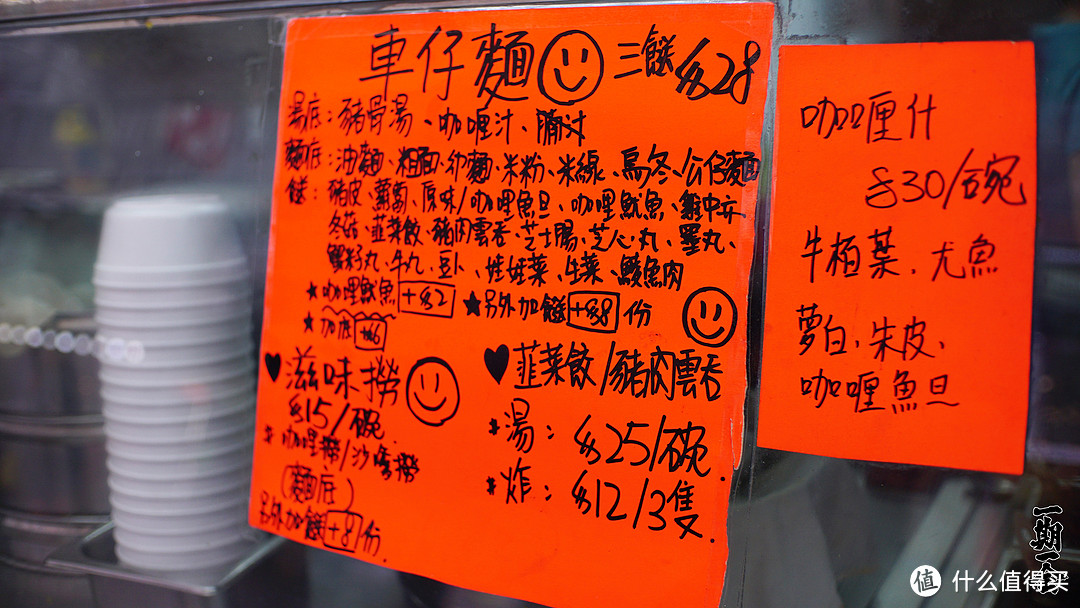 車仔麵 三餸 $28
湯底：豬骨湯、咖喱汁、腩汁
麵底：油麵、粗面、幼麵、米粉、米線、烏冬、公仔麵
餸：豬皮、蘿蔔、原味/咖哩魚旦、咖哩魷魚、雞中亦、
冬菇、韮菜餃、豬肉雲吞、芝士腸、芝心丸、墨丸、
蟹籽丸、牛丸、豆卜、娃娃菜、生菜、鯪魚肉
★咖哩魷魚 +$2 ★另外加餸 +$8 份
★加底 +$6
♥滋味撈
$15/碗
*咖哩撈/沙嗲撈
(麵底)
另外加餸 +8 份
♥韮菜餃/豬肉雲吞
*湯：$25/碗.
*炸：$12/3隻.
咖喱什
$30/碗
牛栢葉、尤魚
萝白、朱皮、
咖喱魚旦
一期一
值 什么值得买